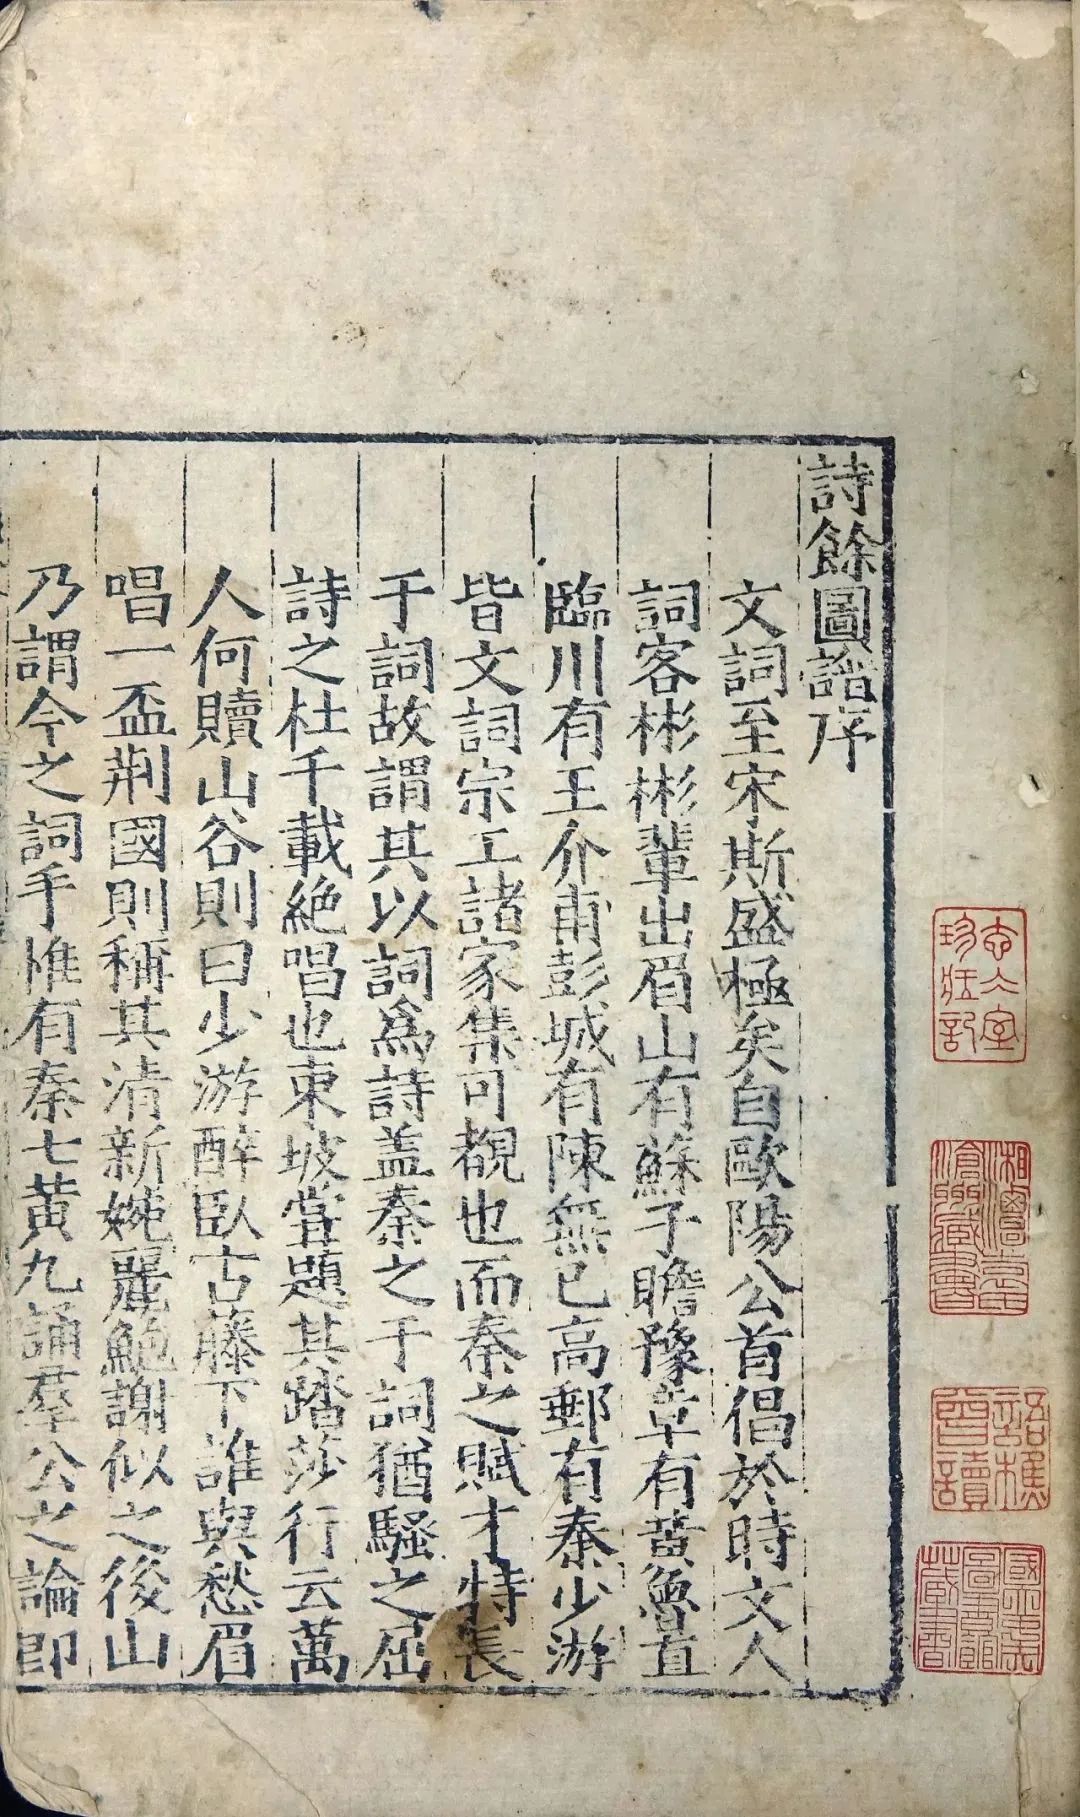 詩餘圖譜序
文詞至宋斯盛極矣自歐陽公首倡於時文人
詞客彬彬輩出眉山有蘇子瞻豫章有黄魯直
臨川有王介甫彭城有陳無已高郵有秦少游
皆文詞宗工諸家集可覩也而秦之賦才特長
于詞故謂其以詞為詩盖秦之于詞猶騷之屈
詩之杜千載絶唱也東坡甞題其踏莎行云萬
人何贖山谷則曰少游醉臥古藤下誰與愁眉
唱一盃荆國則稱其清新婉麗鮑謝似之後山
乃謂今之詞手惟有秦七黄九誦羣公之論即
國立北平圖書館藏書